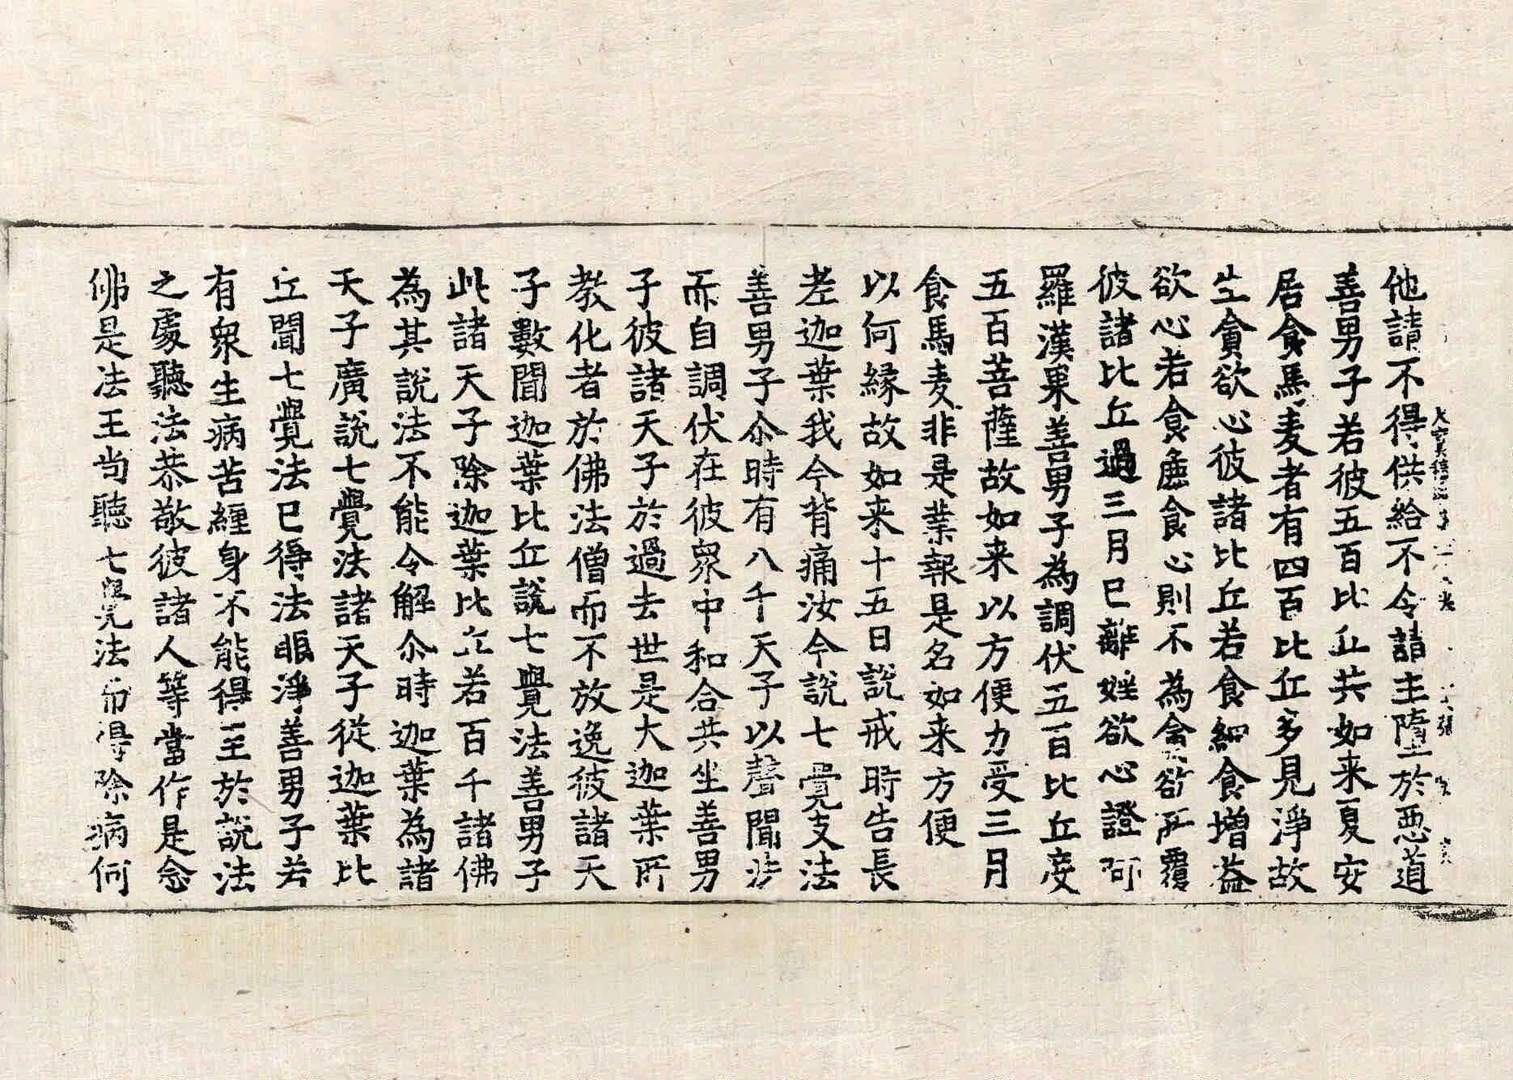 他請不得供給不令請主墮於惡道
善男子若彼五百比丘共如来夏安
居食馬麦者有四百比丘多見淨故
生貪欲心彼諸比丘若食細食增益
欲心若食麁食心則不為貪欲所覆
彼諸比丘過三月已離婬欲心證阿
羅漢果善男子為調伏五百比丘度
五百菩薩故如来以方便力受三月
食馬麦非是業報是名如来方便
以何緣故如来十五日說戒時告長
老迦葉我今背痛汝今說七覺支法
善男子尒時有八千天子以聲聞法
而自調伏在彼衆中和合共坐善男
子彼諸天子於過去世是大迦葉所
教化者於佛法僧而不放逸彼諸天
子數聞迦葉比丘說七覺法善男子
此諸天子除迦葉比丘若百千諸佛
為其說法不能令解尒時迦葉為諸
天子廣說七覺法諸天子從迦葉比
丘聞七覺法已得法眼淨善男子若
有衆生病苦纏身不能得至於說法
之處聽法恭敬彼諸人等當作是念
佛是法王尚聽七覺法而得除病何